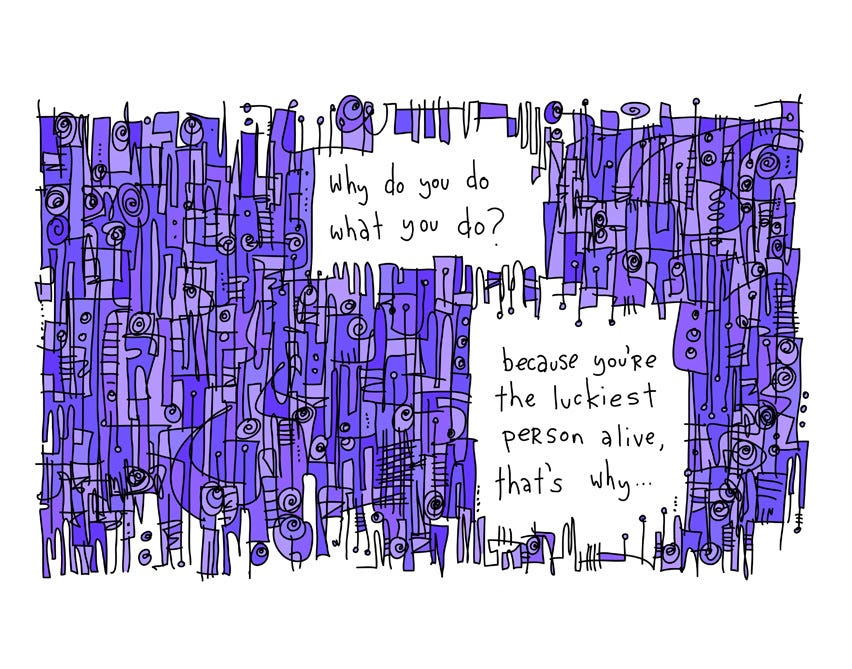 why do you do
what you do?
because you're
the luckiest
person alive,
that's why...